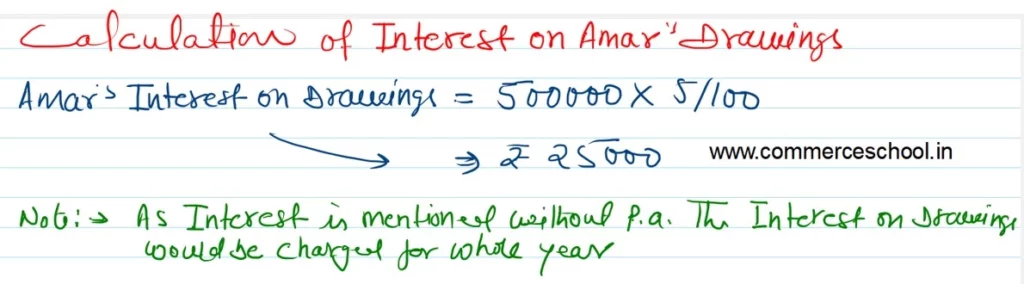 Calculation of Interest on Amar's Drawings
Amar's Interest on Drawings = 500000 X 5/100
⇒ ₹ 25000 www.commerceschool.in
Note:→ As Interest is mentioned without P.a. The Interest on Drawings
would be charged for whole year